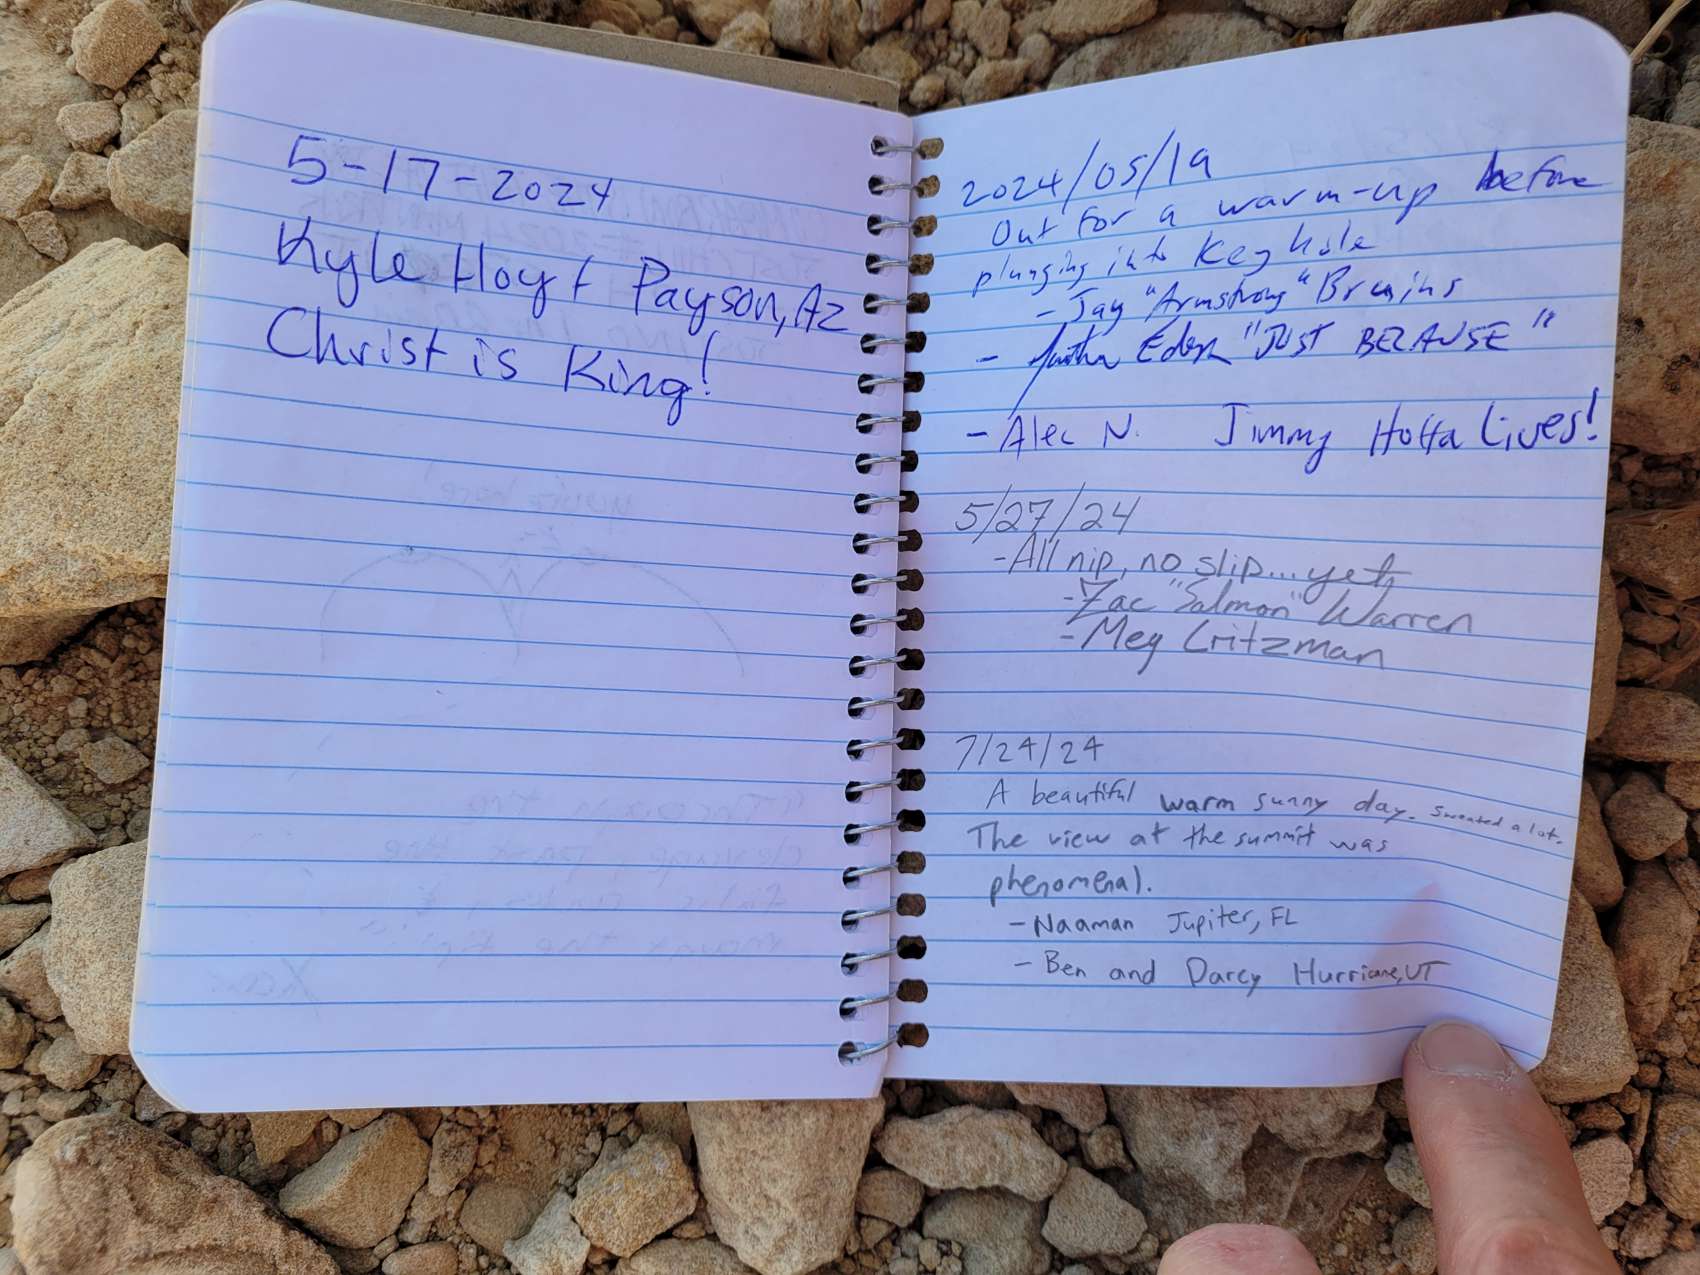 5-17-2024
Kyle Hoyt Payson, Az
Christ is King!
2024/05/19
Out for a warm-up before
plunging into Keyhole
- Jay "Armstrong" Bruins
- "JUST BECAUSE"
- Alec N. Jimmy Hoffa Lives!
5/27/24
- All nip, no slip... yet
- Zac "Salmon" Warren
- Meg Critzman
7/24/24
A beautiful warm sunny day. Sweated a lot.
The view at the summit was
phenomenal.
- Naaman Jupiter, FL
- Ben and Darcy Hurricane, UT